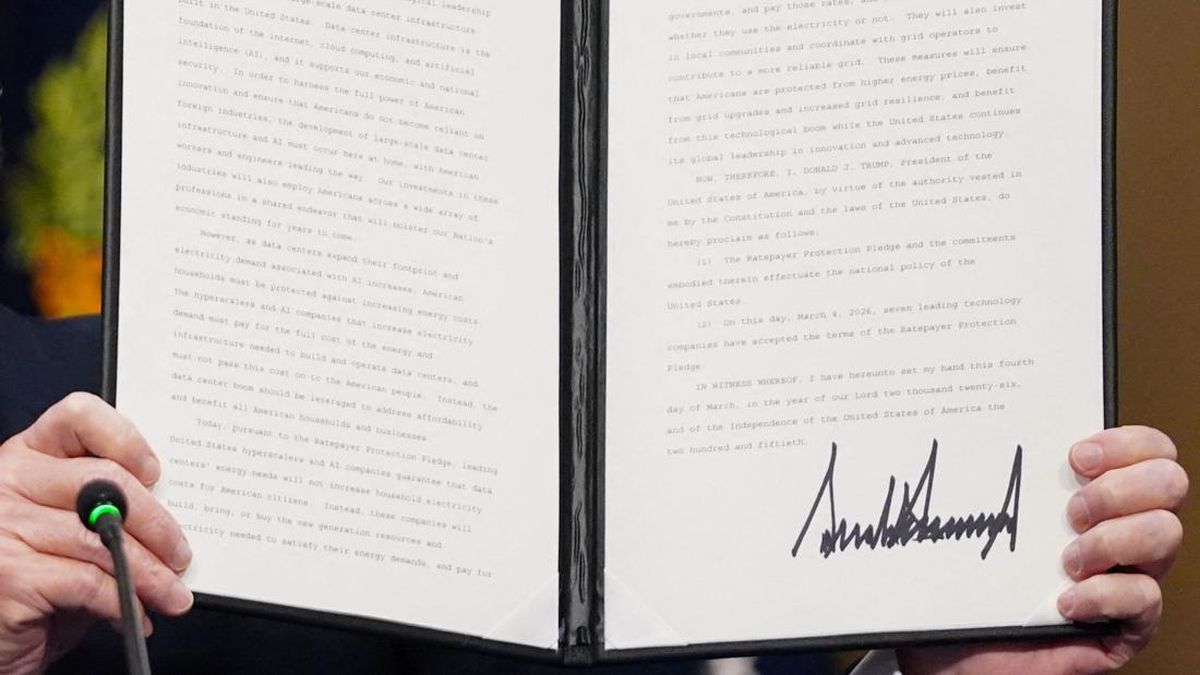 digital leadership
large-scale data center infrastructure
built in the United States. Data center infrastructure is the
foundation of the internet, cloud computing, and artificial
intelligence (AI), and it supports our economic and national
security. In order to harness the full power of American
innovation and ensure that Americans do not become reliant on
foreign industries, the development of large-scale data center
infrastructure and AI must occur here at home, with American
workers and engineers leading the way. Our investments in these
industries will also employ Americans across a wide array of
professions in a shared endeavor that will bolster our Nation's
economic standing for years to come.
However, as data centers expand their footprint and
electricity demand associated with AI increases, American
households must be protected against increasing energy costs.
The hyperscalers and AI companies that increase electricity
demand must pay for the full cost of the energy and
infrastructure needed to build and operate data centers, and
must not pass this cost on to the American people. Instead, the
data center boom should be leveraged to address affordability
and benefit all American households and businesses.
Today, pursuant to the Ratepayer Protection Pledge, leading
United States hyperscalers and AI companies guarantee that data
centers' energy needs will not increase household electricity
costs for American citizens. Instead, these companies will
build, bring, or buy the new generation resources and
electricity needed to satisfy their energy demands, and pay for
governments, and pay those rates,
whether they use the electricity or not. They will also invest
in local communities and coordinate with grid operators to
contribute to a more reliable grid. These measures will ensure
that Americans are protected from higher energy prices, benefit
from grid upgrades and increased grid resilience, and benefit
from this technological boom while the United States continues
its global leadership in innovation and advanced technology.
NOW, THEREFORE, I, DONALD J. TRUMP, President of the
United States of America, by virtue of the authority vested in
me by the Constitution and the laws of the United States, do
hereby proclaim as follows:
(1) The Ratepayer Protection Pledge and the commitments
embodied therein effectuate the national policy of the
United States.
(2) On this day, March 4, 2026, seven leading technology
companies have accepted the terms of the Ratepayer Protection
Pledge.
IN WITNESS WHEREOF, I have hereunto set my hand this fourth
day of March, in the year of our Lord two thousand twenty-six,
and of the Independence of the United States of America the
two hundred and fiftieth.